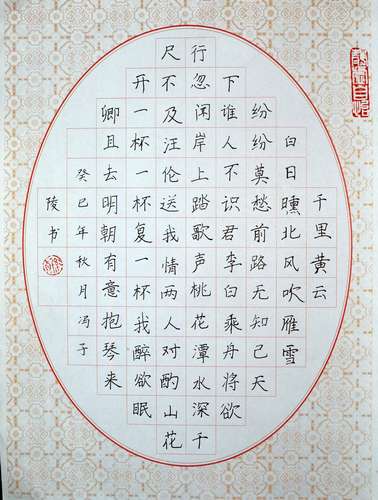 千里黄云
白日曛北风吹雁雪
纷纷莫愁前路无知己天
下谁人不识君李白乘舟将欲
行忽闻岸上踏歌声桃花潭水深千
尺不及汪伦送我情两人对酌山花
开一杯一杯复一杯我醉欲眠
卿且去明朝有意抱琴来
癸巳年秋月冯子
陵书